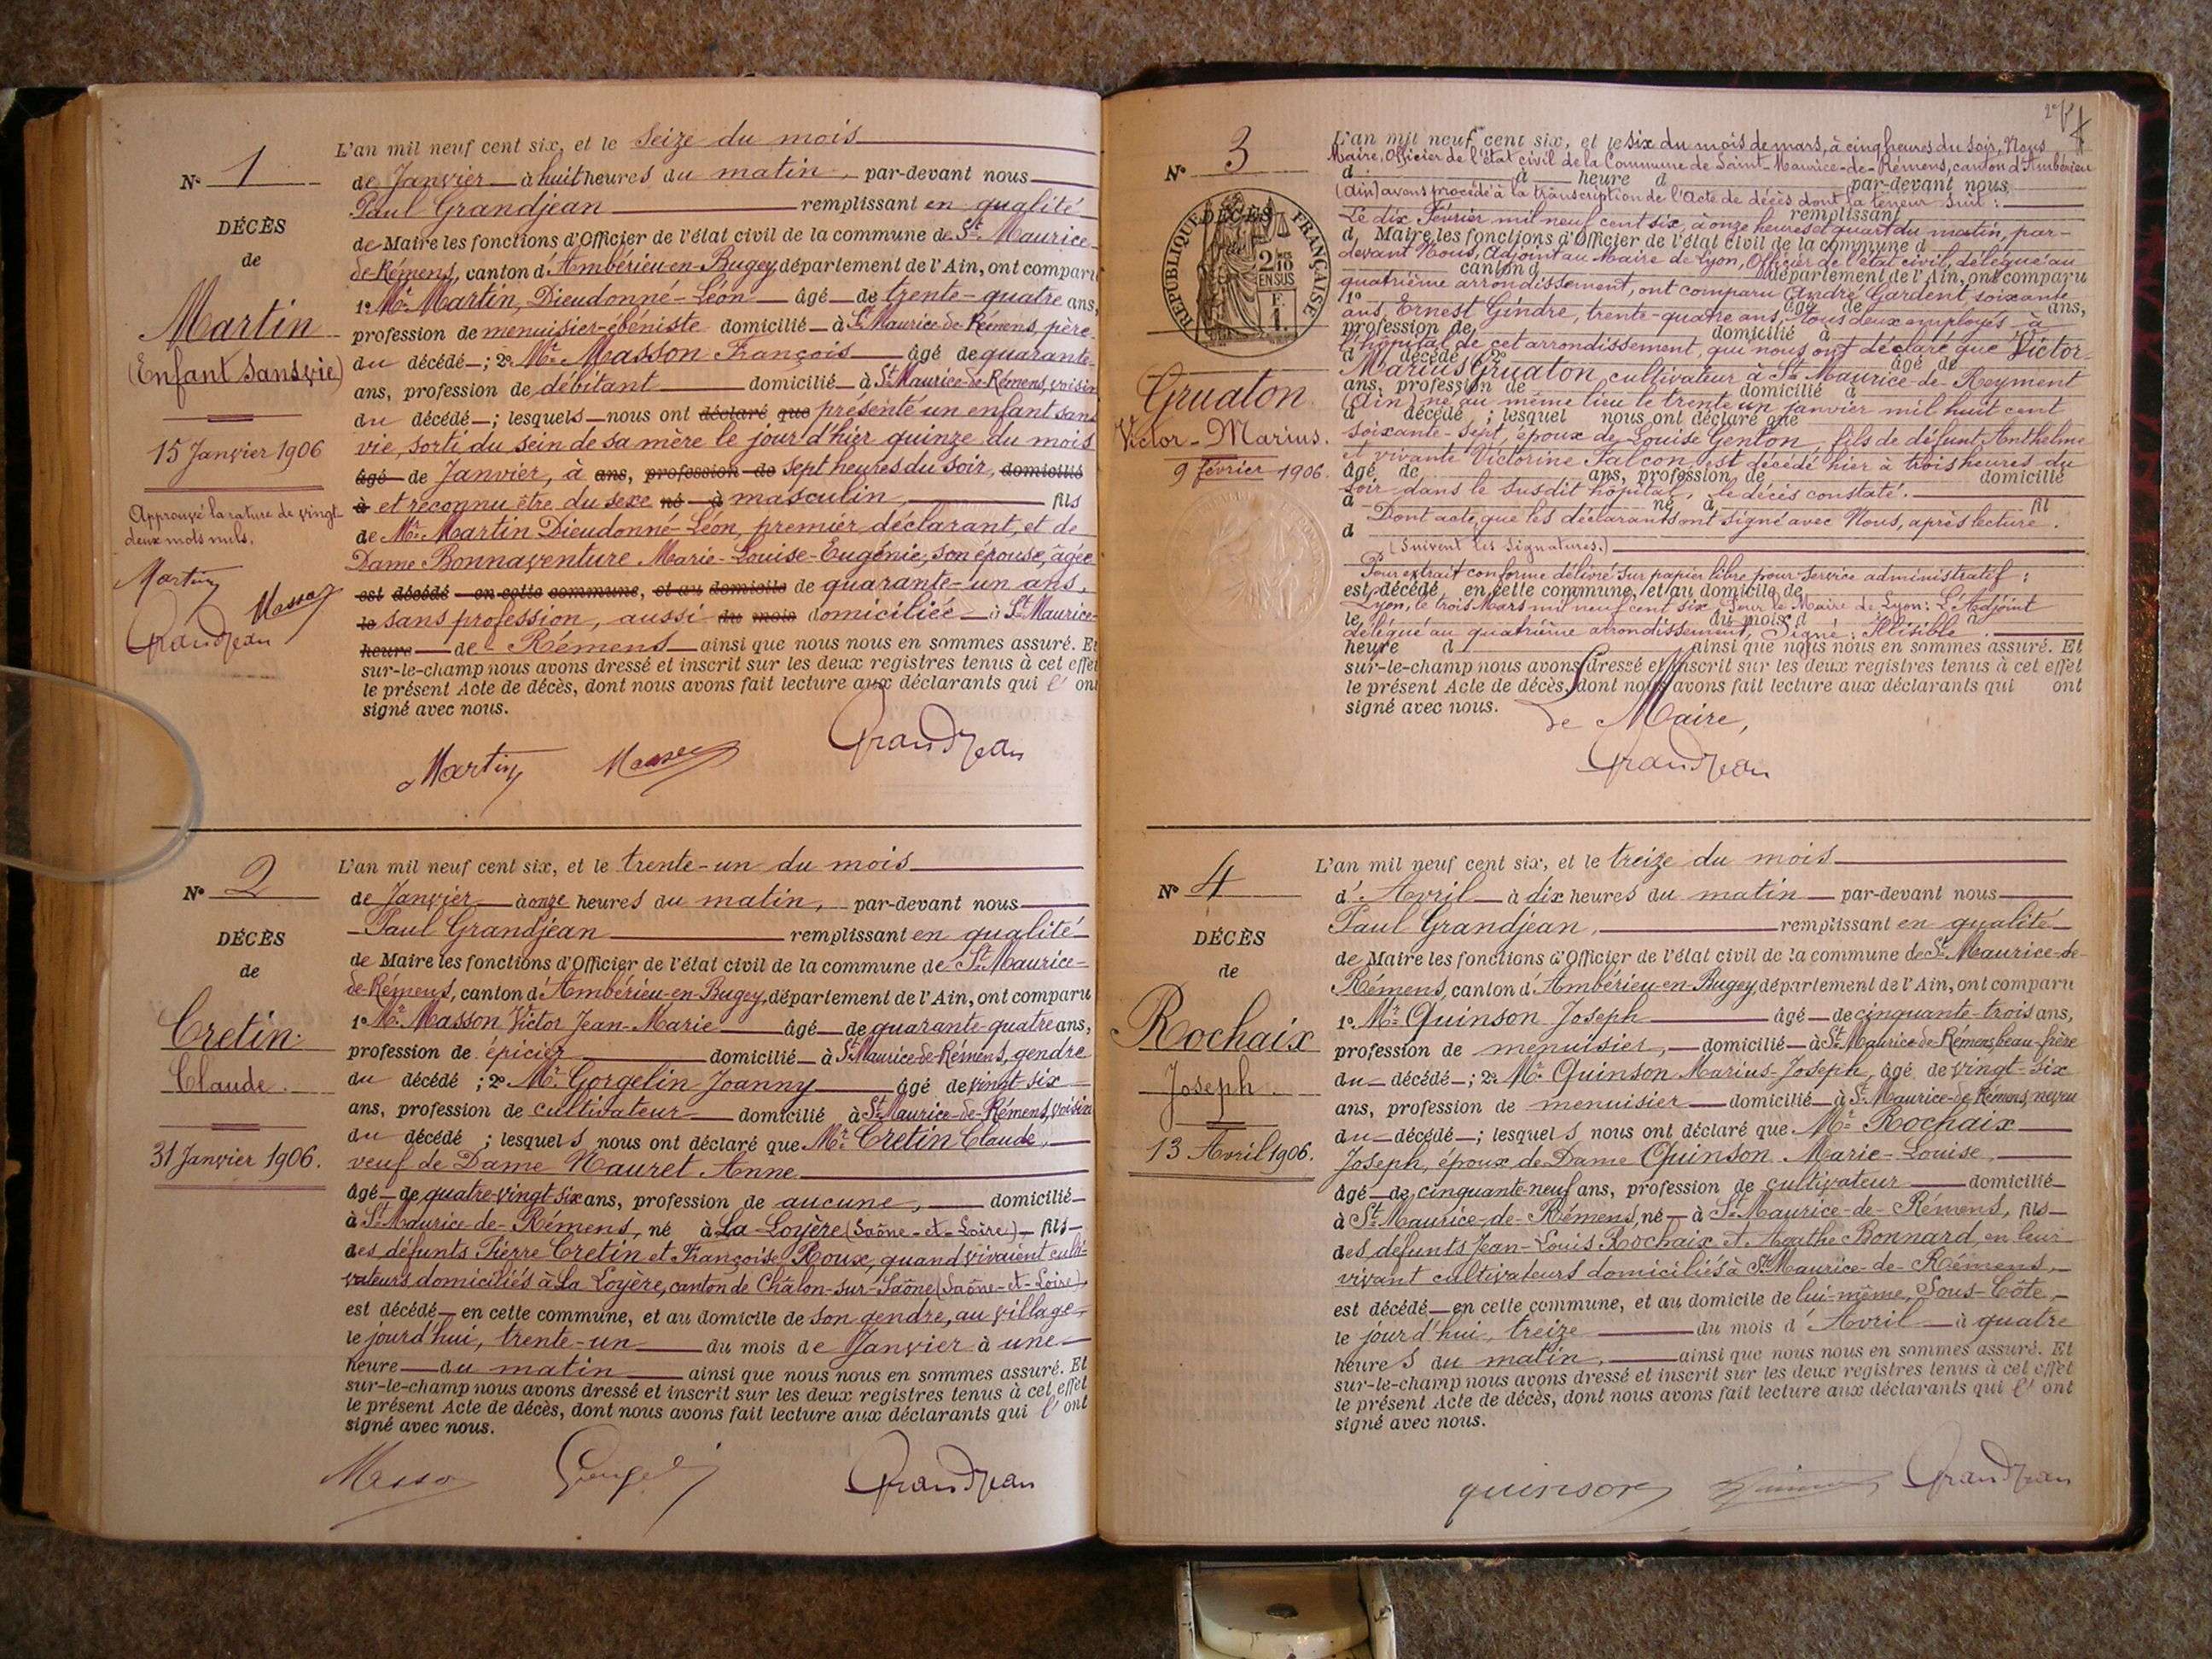 N° 1
DÉCÈS
de
Martin
(Enfant sans vie)
15 Janvier 1906
Approuvé la rature de vingt-
deux mots nuls.
Martin
Masson
Grandjean
L'an mil neuf cent six, et le Seize du mois
de Janvier à huit heures du matin, par-devant nous
Paul Grandjean remplissant en qualité
de Maire les fonctions d'Officier de l'état civil de la commune de St Maurice-
de-Rémens, canton d'Ambérieu-en-Bugey, département de l'Ain, ont comparu
1° Mr Martin, Dieudonné-Léon âgé de trente-quatre ans,
profession de menuisier-ébéniste domicilié à St Maurice-de-Rémens, père
du décédé ; 2° Mr Masson François âgé de quarante
ans, profession de débitant domicilié à St Maurice-de-Rémens, voisin
du décédé ; lesquels nous ont déclaré que présenté un enfant sans
vie, sorti du sein de sa mère le jour d'hier quinze du mois
âgé de Janvier, à ans, profession de sept heures du soir, domicilié
à et reconnu être du sexe né à masculin, fils
de Mr Martin Dieudonné-Léon, premier déclarant, et de
Dame Bonnaventure Marie-Louise-Eugénie, son épouse, âgée
est décédé en cette commune, et au domicile de quarante-un ans,
le sans profession, aussi du mois domiciliée à St Maurice-
heure de Rémens ainsi que nous nous en sommes assuré. Et
sur-le-champ nous avons dressé et inscrit sur les deux registres tenus à cet effet
le présent Acte de décès, dont nous avons fait lecture aux déclarants qui l'ont
signé avec nous.
Martin Masson Grandjean
N° 2
DÉCÈS
de
Cretin
Claude
31 Janvier 1906.
L'an mil neuf cent six, et le trente-un du mois
de Janvier à onze heures du matin, par-devant nous
Paul Grandjean remplissant en qualité
de Maire les fonctions d'Officier de l'état civil de la commune de St Maurice-
de-Rémens, canton d'Ambérieu-en-Bugey, département de l'Ain, ont comparu
1° Mr Masson Victor Jean-Marie âgé de quarante-quatre ans,
profession de épicier domicilié à St Maurice-de-Rémens, gendre
du décédé ; 2° Mr Gorgelin Joanny âgé de vingt-six
ans, profession de cultivateur domicilié à St Maurice-de-Rémens, voisin
du décédé ; lesquels nous ont déclaré que Mr Cretin Claude,
veuf de Dame Nauret Anne
âgé de quatre-vingt-six ans, profession de aucune, domicilié
à St Maurice-de-Rémens, né à La Loyère (Saône-et-Loire) fils
des défunts Pierre Cretin et Françoise Roux, quand vivaient culti-
vateurs domiciliés à La Loyère, canton de Châlon-sur-Saône (Saône-et-Loire)
est décédé en cette commune, et au domicile de son gendre, au village
le jourd'hui, trente-un du mois de Janvier à une
heure du matin ainsi que nous nous en sommes assuré. Et
sur-le-champ nous avons dressé et inscrit sur les deux registres tenus à cet effet
le présent Acte de décès, dont nous avons fait lecture aux déclarants qui l'ont
signé avec nous.
Masson Gorgelin Grandjean
N° 3
DÉCÈS
RÉPUBLIQUE FRANÇAISE
2/10
EN SUS
F.
1.
Gruaton
Victor-Marius.
9 février 1906.
L'an mil neuf cent six, et le six du mois de mars, à cinq heures du soir, Nous
Maire, Officier de l'état civil de la Commune de Saint-Maurice-de-Rémens, canton d'Ambérieu
d à heure d par-devant nous
(Ain) avons procédé à la transcription de l'Acte de décès dont la teneur suit :
remplissant
Le dix Février mil neuf cent six, à onze heures et quart du matin, par-
d Maire les fonctions d'Officier de l'état civil de la commune d
devant Nous, Adjoint au Maire de Lyon, Officier de l'état civil, délégué au
canton d département de l'Ain, ont comparu
quatrième arrondissement, ont comparu André Gardent soixante
1° âgé de ans,
ans, Ernest Gindre, trente-quatre ans, tous deux employés à
profession de domicilié à
l'hôpital de cet arrondissement, qui nous ont déclaré que Victor-
d décédé ; 2° âgé de
Marius Gruaton cultivateur à St Maurice-de-Reyment
ans, profession de domicilié à
(Ain) né au même lieu le trente un janvier mil huit cent
d décédé ; lesquel nous ont déclaré que
soixante-sept, époux de Louise Genton, fils de défunt Anthelme
et vivante Victorine Falcon, est décédé hier à trois heures du
âgé de ans, profession de domicilié
soir dans le susdit hôpital, le décès constaté.
à né à fil
Dont acte que les déclarants ont signé avec Nous, après lecture.
d
(Suivent les signatures.)
Pour extrait conforme délivré sur papier libre pour service administratif :
est décédé en cette commune, et au domicile de
Lyon, le trois Mars mil neuf cent six. Pour le Maire de Lyon : L'Adjoint
le du mois d à
délégué au quatrième arrondissement, Signé : Illisible.
heure d ainsi que nous nous en sommes assuré. Et
sur-le-champ nous avons dressé et inscrit sur les deux registres tenus à cet effet
le présent Acte de décès, dont nous avons fait lecture aux déclarants qui ont
signé avec nous.
Le Maire,
Grandjean
N° 4
DÉCÈS
de
Rochaix
Joseph
13 Avril 1906.
L'an mil neuf cent six, et le treize du mois
d'Avril à dix heures du matin par-devant nous
Paul Grandjean, remplissant en qualité
de Maire les fonctions d'Officier de l'état civil de la commune de St Maurice-de-
Rémens, canton d'Ambérieu-en-Bugey, département de l'Ain, ont comparu
1° Mr Quinson Joseph âgé de cinquante-trois ans,
profession de menuisier, domicilié à St Maurice-de-Rémens, beau-frère
du décédé ; 2° Mr Quinson Marius-Joseph, âgé de vingt-six
ans, profession de menuisier domicilié à St Maurice-de-Rémens, neveu
du décédé ; lesquels nous ont déclaré que Mr Rochaix
Joseph, époux de Dame Quinson Marie-Louise,
âgé de cinquante-neuf ans, profession de cultivateur domicilié
à St Maurice-de-Rémens, né à St Maurice-de-Rémens, fils
des défunts Jean-Louis Rochaix et Agathe Bonnard, en leur
vivant cultivateurs domiciliés à St Maurice-de-Rémens,
est décédé en cette commune, et au domicile de lui-même, Sous-Côte,
le jourd'hui, treize du mois d'Avril à quatre
heures du matin, ainsi que nous nous en sommes assuré. Et
sur-le-champ nous avons dressé et inscrit sur les deux registres tenus à cet effet
le présent Acte de décès, dont nous avons fait lecture aux déclarants qui l'ont
signé avec nous.
quinson Quinson Grandjean